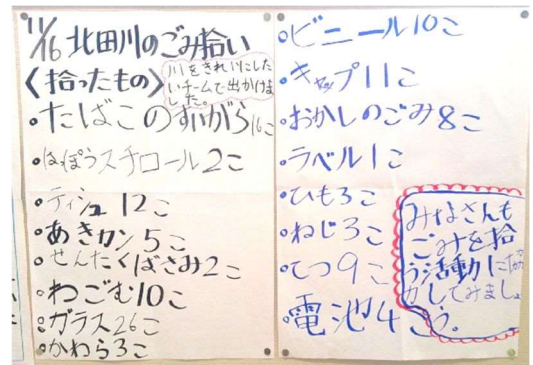 11/16 北田川のごみ拾い
〈拾ったもの〉
川をきれいにした
いチームで出かけま
した。
・たばこのすいがら16こ
・はっぽうスチロール2こ
・ティシュ12こ
・あきカン5こ
・せんたくばさみ2こ
・わごむ10こ
・ガラス26こ
・かわら3こ
・ビニール10こ
・キャップ11こ
・おかしのごみ8こ
・ラベル1こ
・ひも3こ
・ねじ3こ
・てつ9こ
・電池4こ
みなさんも
ごみを拾
う活動に参
加してみまし
ょう。